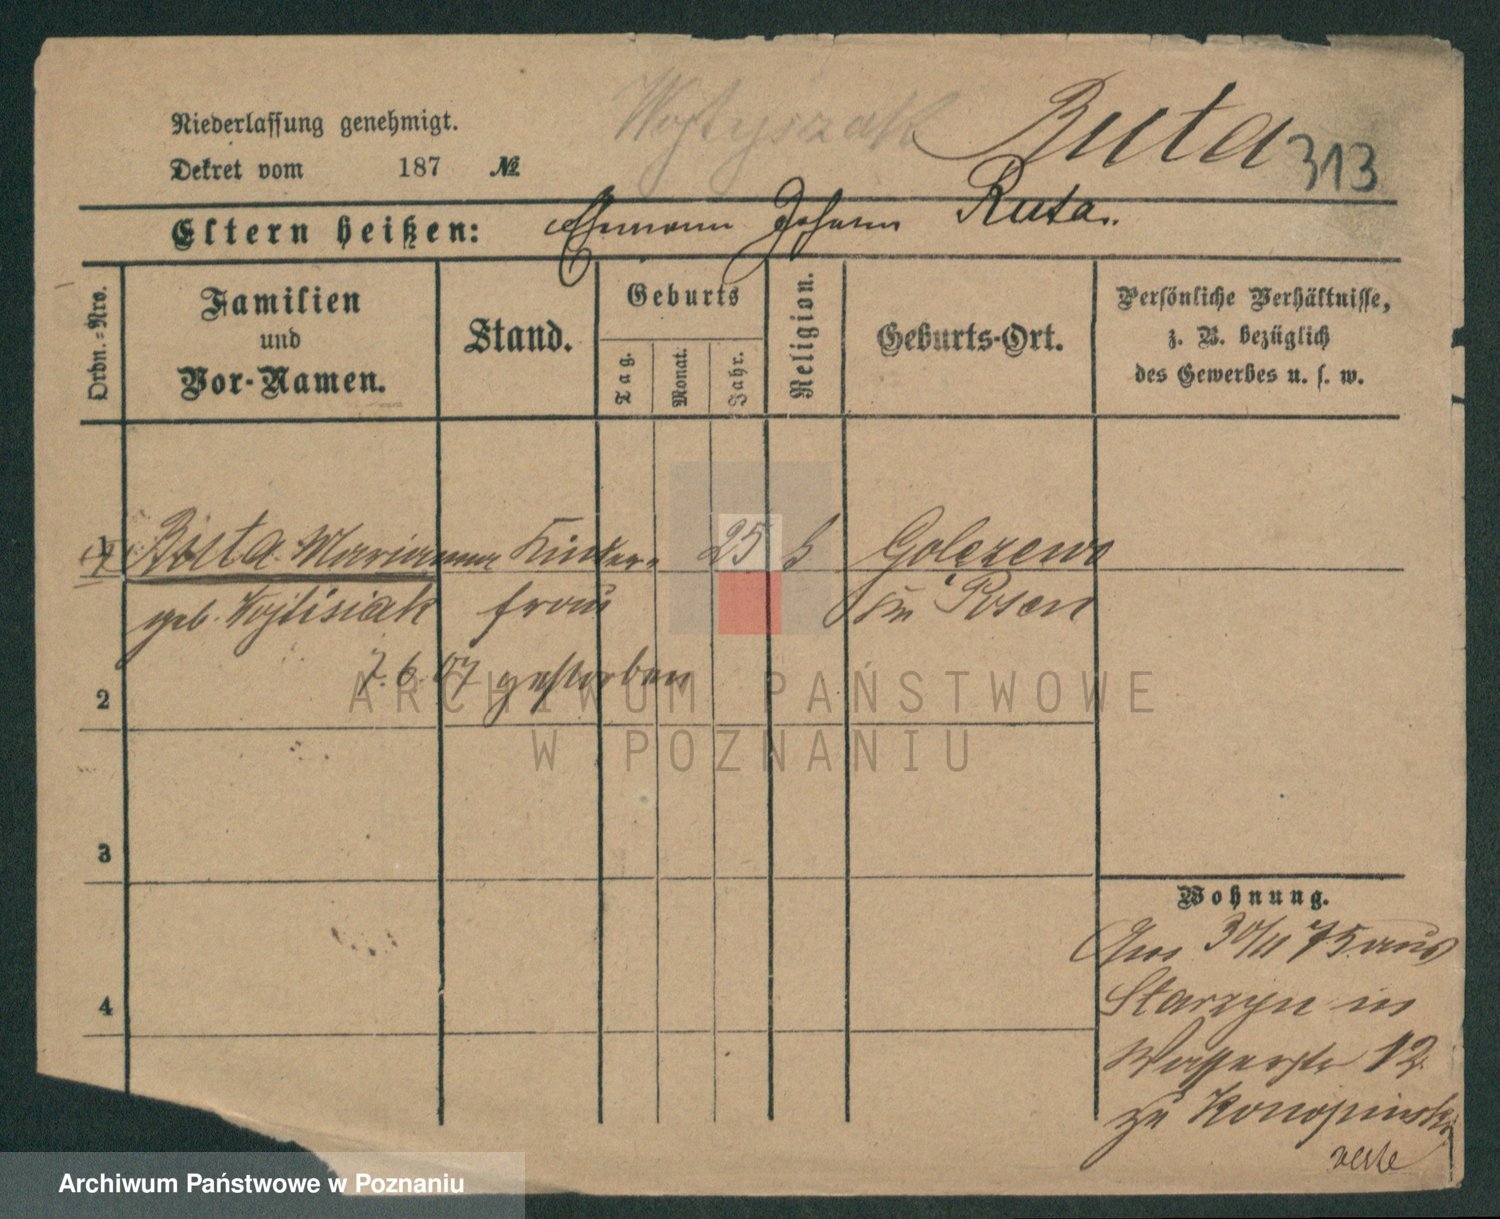 Niederlassung genehmigt.
Wojtyszak
Ruta
313
Dekret vom 187 №
Eltern heißen: Ehemann Johann Ruta.
Ordn.=Nro.
Familien
und
Vor-Namen.
Stand.
Geburts
Tag.
Monat.
Jahr.
Religion.
Geburts-Ort.
Persönliche Verhältnisse,
z. B. bezüglich
des Gewerbes u. s. w.
1 Ruta Marianna Kinder- 25 k Golezewo
geb. Wojtisiak frau Kr. Posen
7.6.07 gestorben
2
ARCHIWUM PAŃSTWOWE
W POZNANIU
3
Wohnung.
Am 30/11 75 aus
4
Starzyn in
Wasserstr 12
zu Konopinski
Archiwum Państwowe w Poznaniu